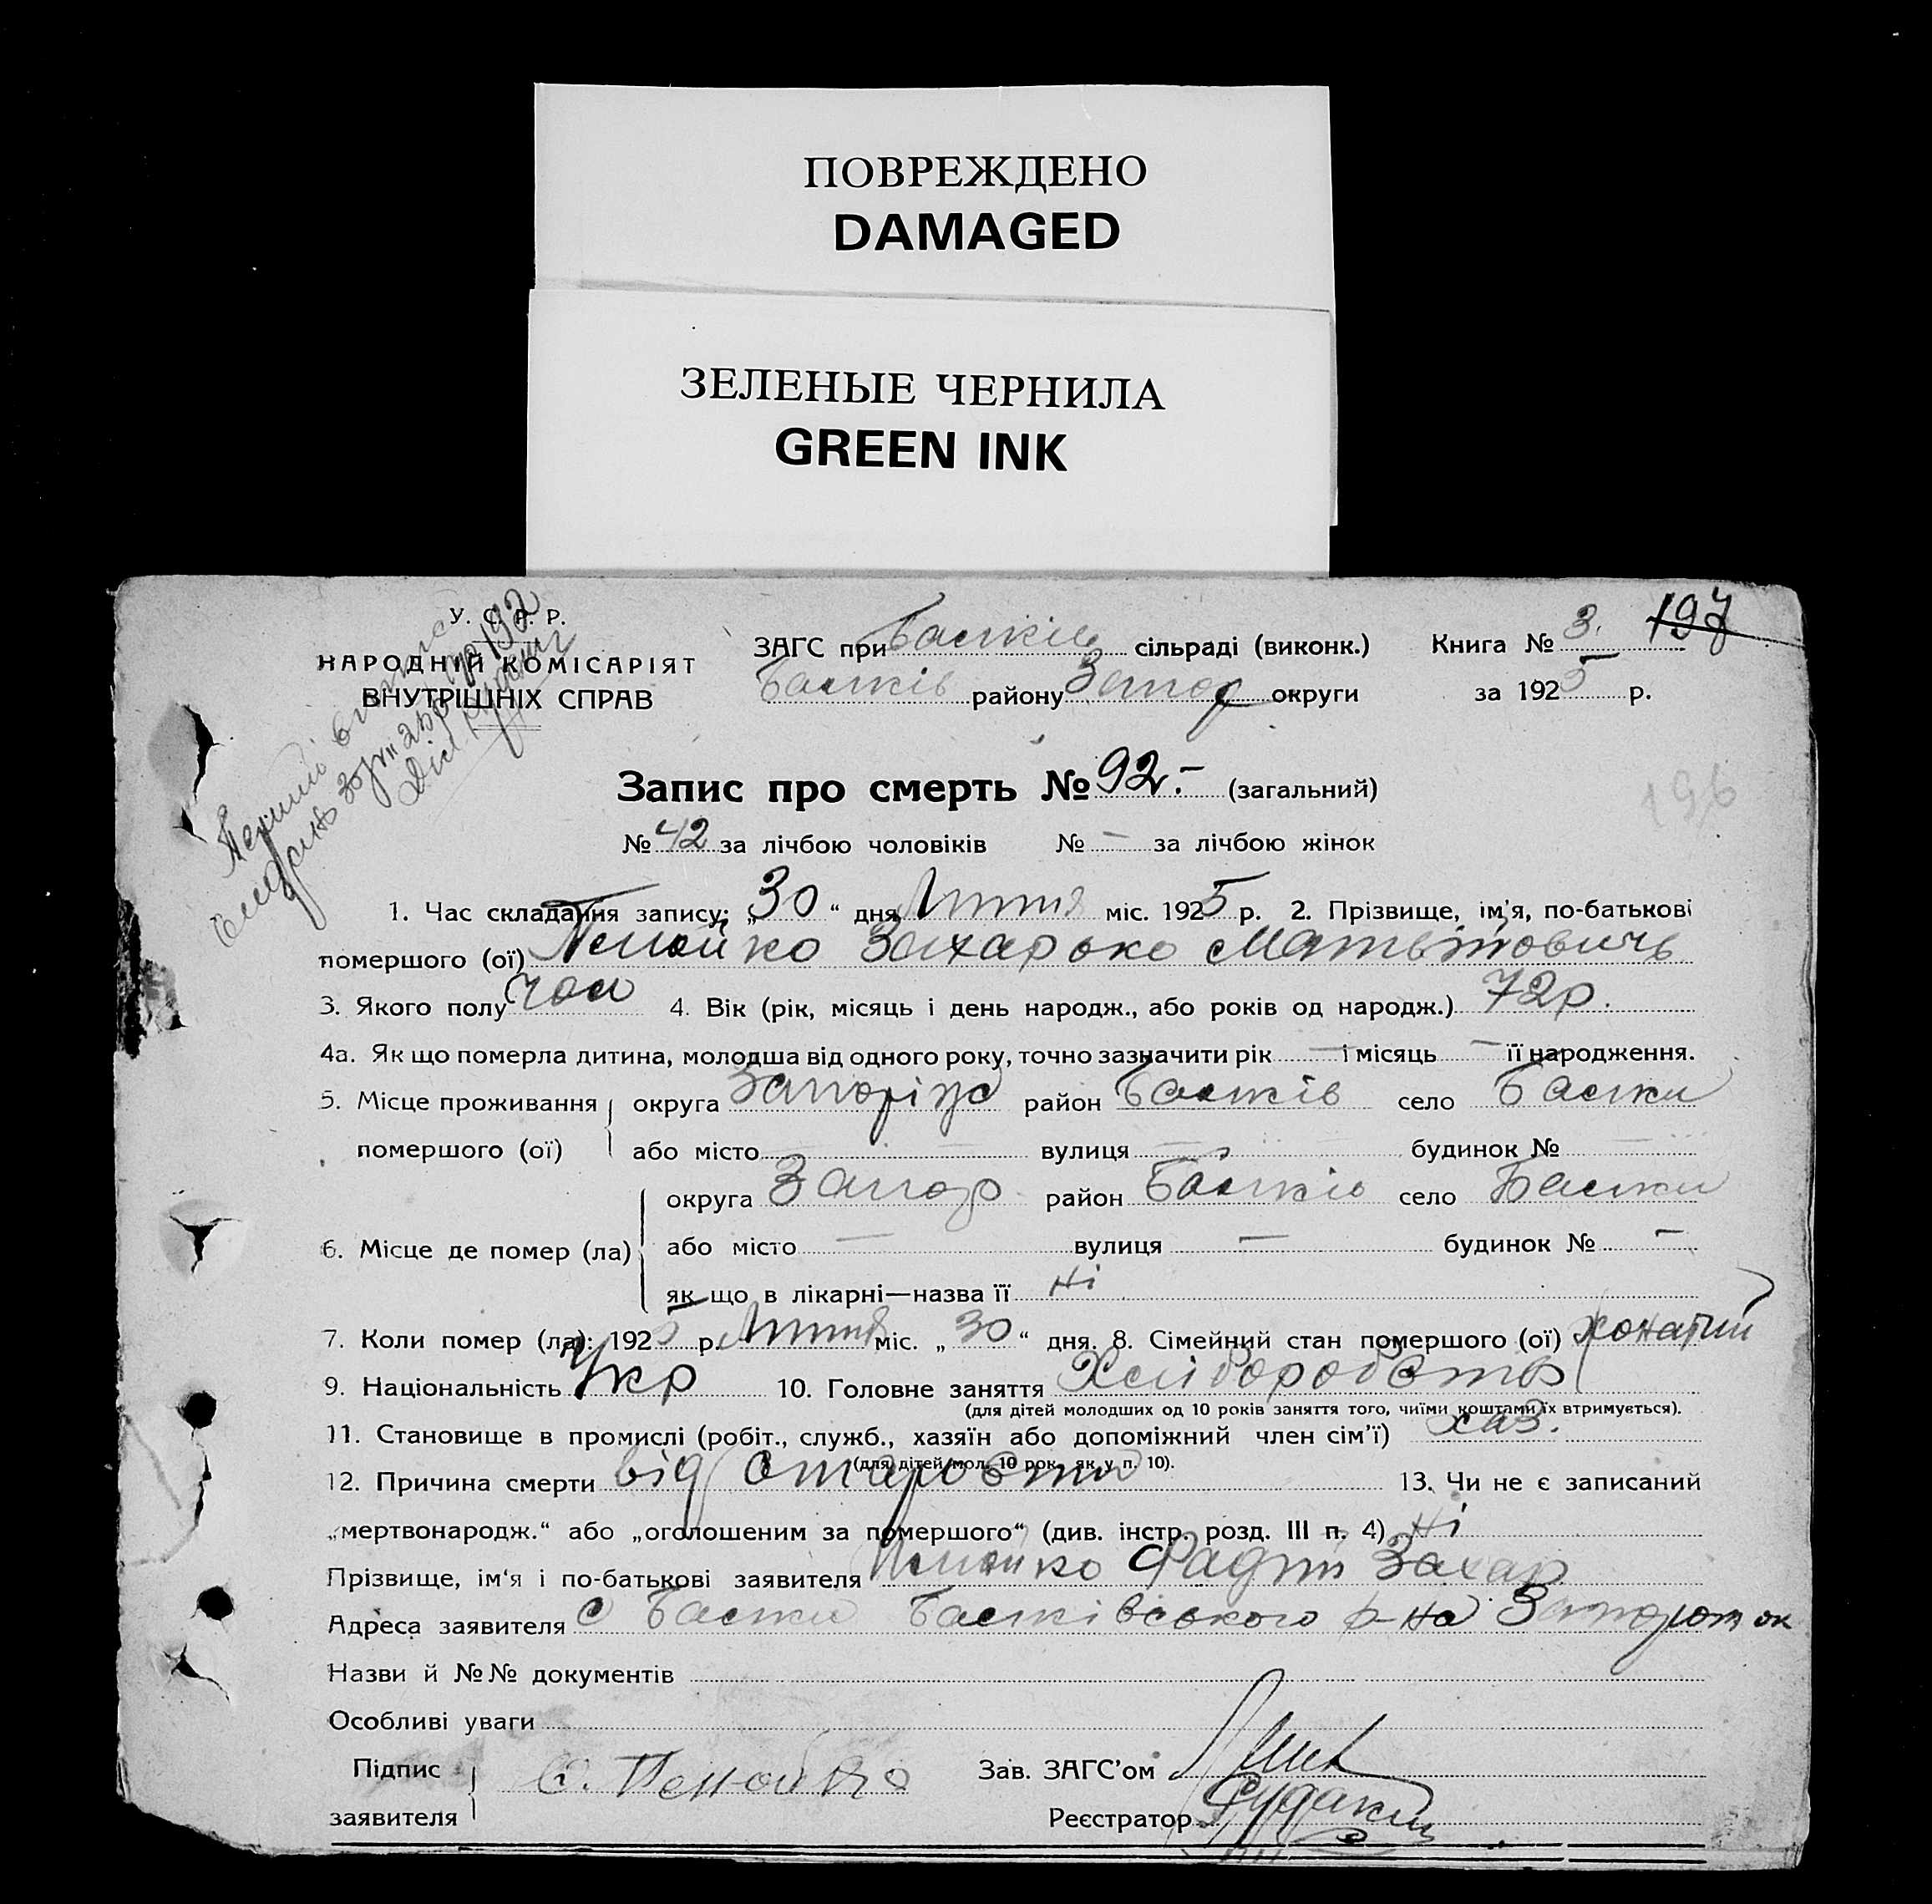 ПОВРЕЖДЕНО
DAMAGED
ЗЕЛЕНЫЕ ЧЕРНИЛА
GREEN INK
У. С. Р. Р.
НАРОДНІЙ КОМІСАРІЯТ
ВНУТРІШНІХ СПРАВ
ЗАГС при Балків сільраді (виконк.) Книга № 3. 197
Балків району Запор округи за 1925 р.
Запис про смерть № 92.- (загальний)
196
№ 42 за лічбою чоловіків № – за лічбою жінок
1. Час складання запису: „30“ дня Липня міс. 1925 р. 2. Прізвище, ім'я, по-батькові
помершого (ої) Захарко
3. Якого полу чол 4. Вік (рік, місяць і день народж., або років од народж.) 72р.
4а. Як що померла дитина, молодша від одного року, точно зазначити рік — і місяць — її народження.
5. Місце проживання округа Запоріж район Балків село Балки
помершого (ої) або місто — вулиця — будинок № —
округа Запор район Балків село Балки
6. Місце де помер (ла) або місто — вулиця — будинок № —
як що в лікарні—назва її ні
7. Коли помер (ла): 1925 р. Липня міс. „30“ дня. 8. Сімейний стан помершого (ої) жонатий
9. Національність Укр 10. Головне заняття Хліборобств
(для дітей молодших од 10 років заняття того, чиїми коштами їх втримується).
11. Становище в промислі (робіт., служб., хазяїн або допоміжний член сім'ї) хаз.
(для дітей мол. 10 рок. як у п. 10).
12. Причина смерти від старости 13. Чи не є записаний
„мертвонародж.“ або „оголошеним за помершого“ (див. інстр. розд. III п. 4) ні
Прізвище, ім'я і по-батькові заявителя Захар
Адреса заявителя с Балки Балківського р-на
Назви й №№ документів
Особливі уваги
Підпис
заявителя
Зав. ЗАГС'ом
Реєстратор